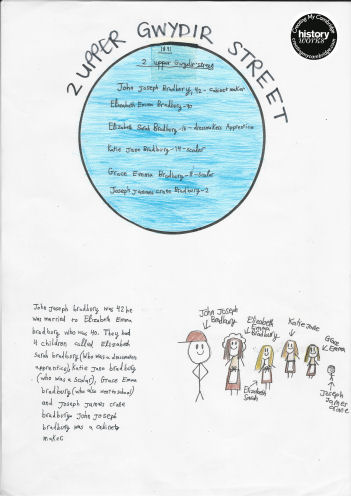 2 UPPER GWYDIR STREET
Creating My Cambridge
history
WORKS
creatingmycambridge.com
1891
2 upper Gwydir street
John Joseph Bradbury, 42 - cabinet maker
Elizabeth Emma Bradbury - 40
Elizabeth Sarah Bradbury - 16 - dressmakers Apprentice
Katie Jane Bradbury - 14 - scolar
Grace Emma Bradbury - 8 - scolar
Joseph James crane Bradbury - 2
John Joseph bradbury was 42 he
was married to Elizabeth Emma
bradbury who was 40. They had
4 children called Elizabeth
Sarah bradbury (Who was a dressmaker
apprentice), Katie Jane bradbury
(who was a Scolar), Grace Emma
bradbury (who also went to school)
and Joseph James crane
bradbury. John Joseph
bradbury was a cabinet
maker
John Joseph
Bradbury
Elizabeth
Emma
Bradbury
Katie Jane
Grace
Emma
Elizabeth
Sarah
Joseph
James
crane